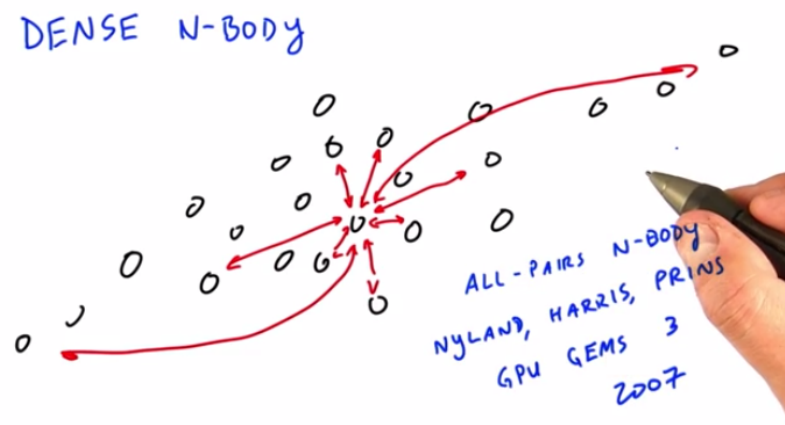 DENSE N-BODY
ALL-PAIRS N-BODY
NYLAND, HARRIS, PRINS
GPU GEMS 3
2007